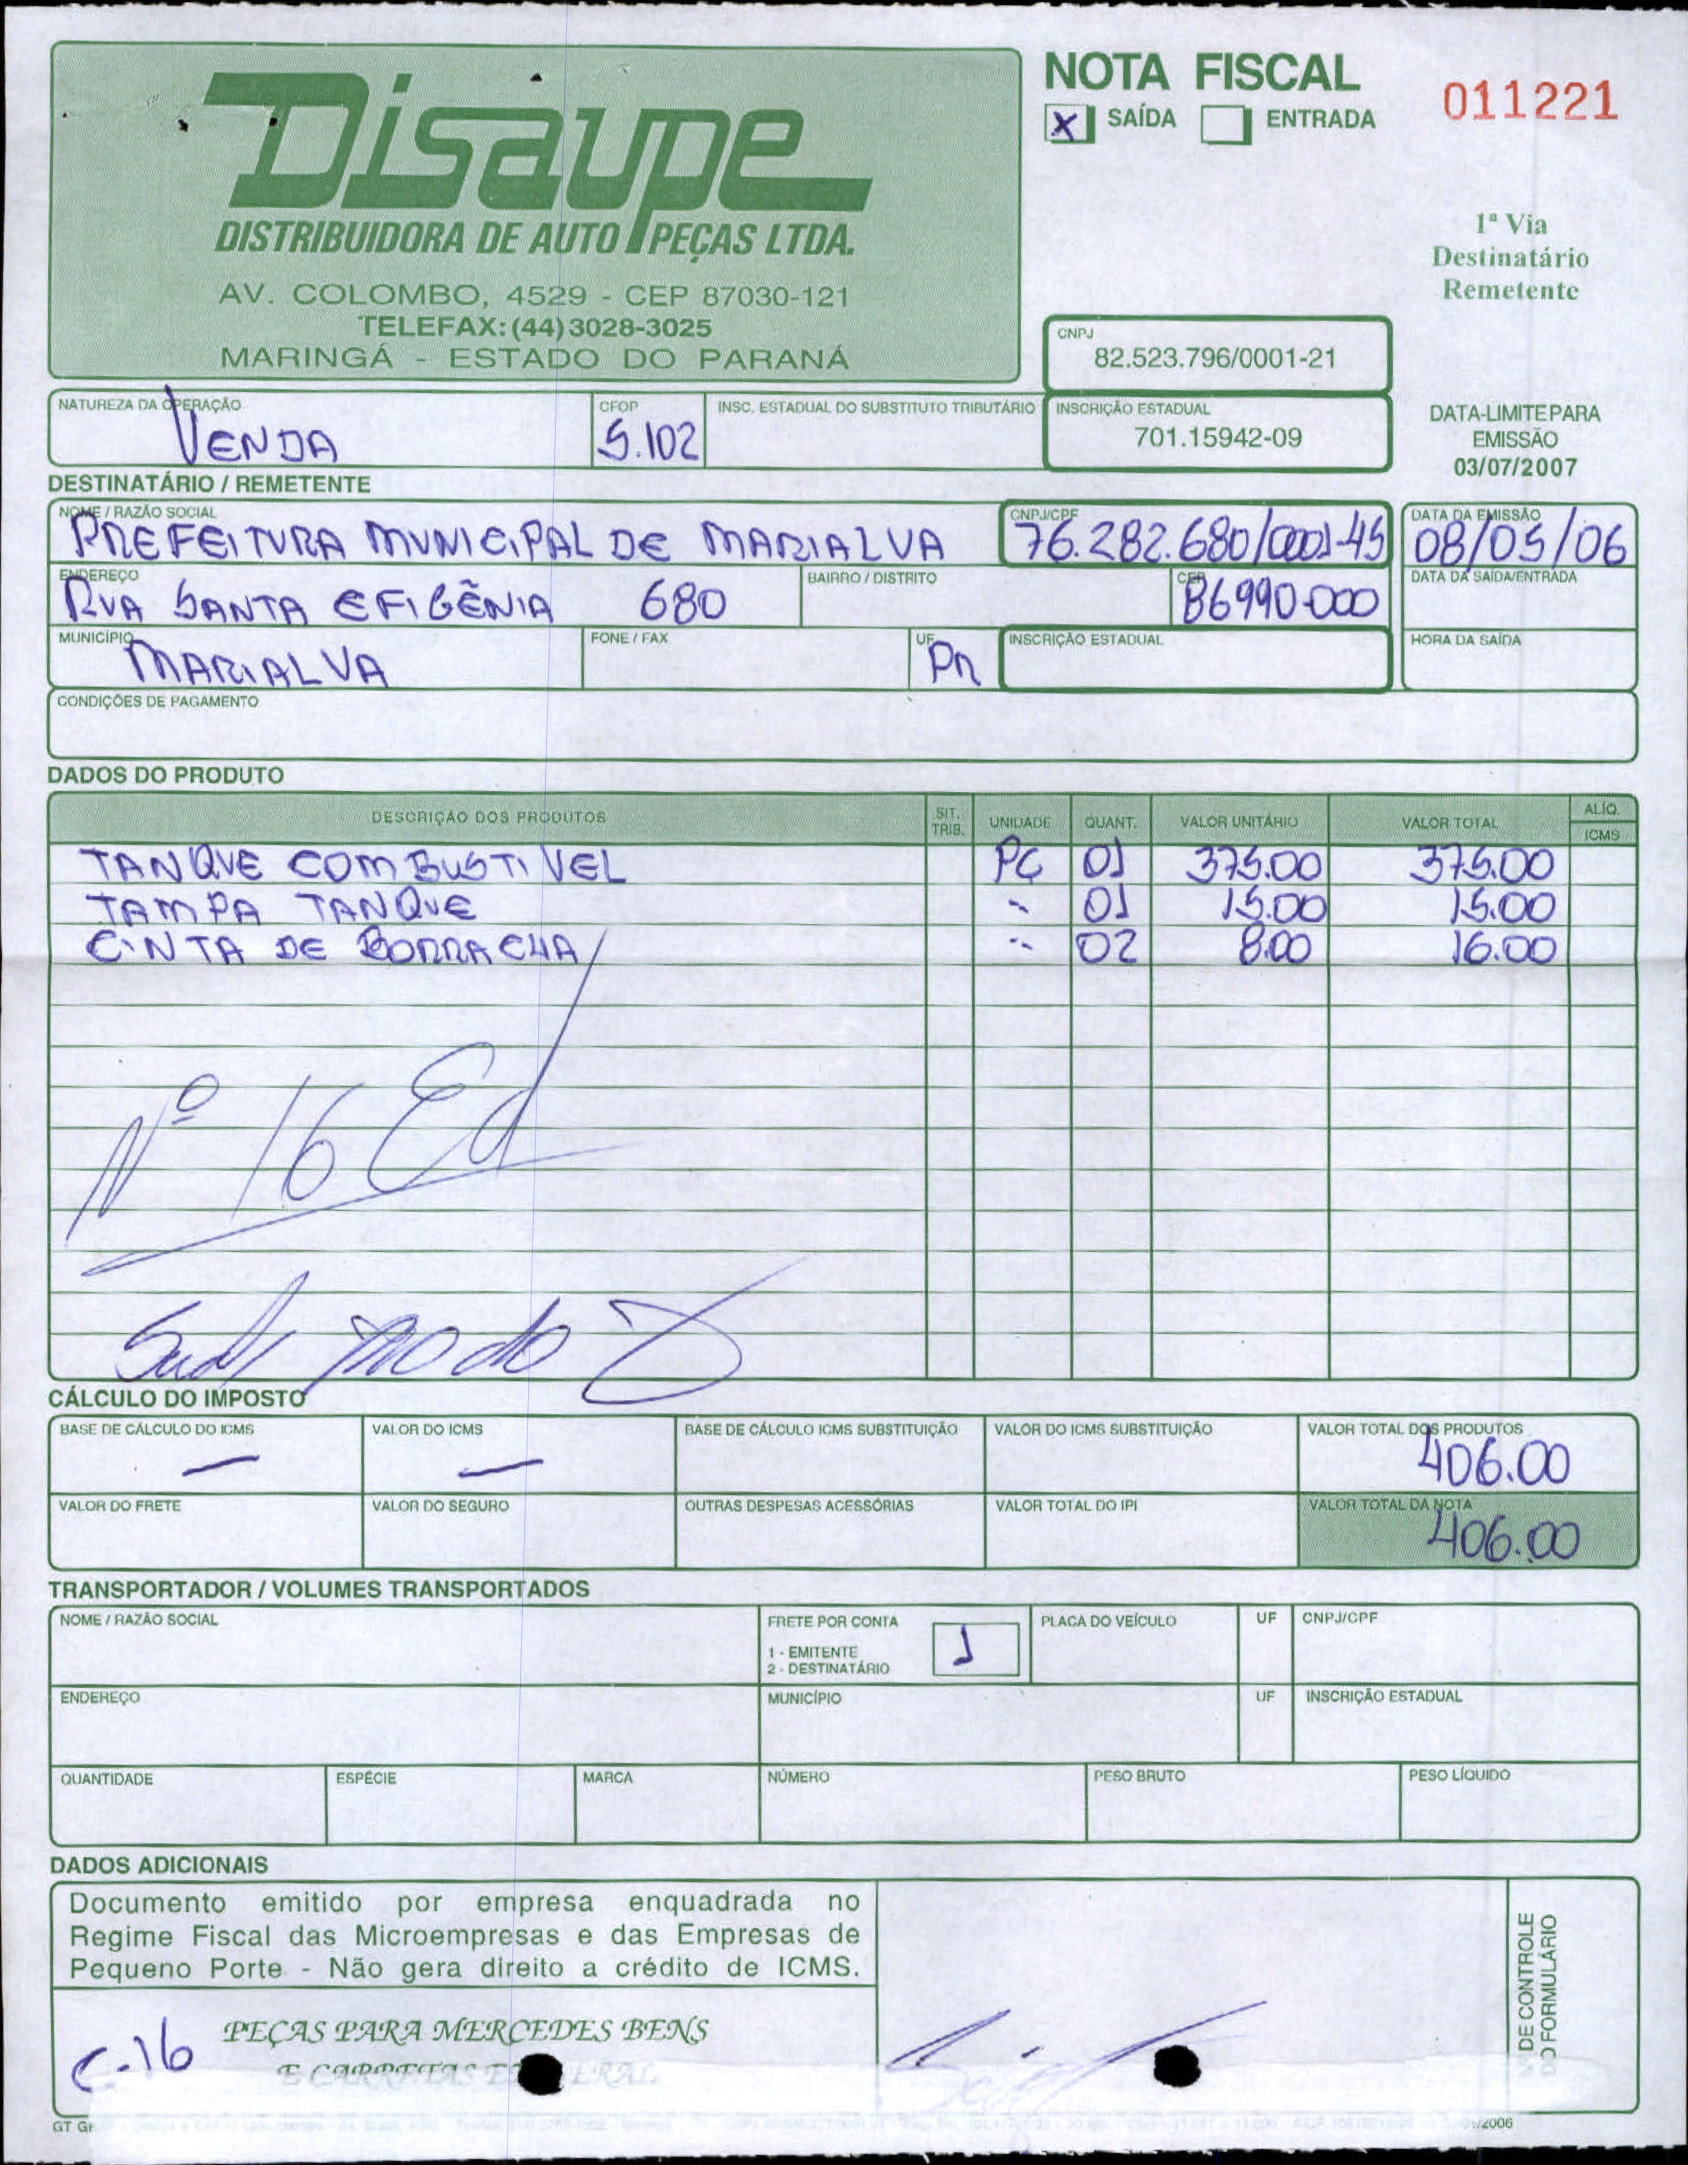 Disaupe
DISTRIBUIDORA DE AUTO PEÇAS LTDA.
AV. COLOMBO, 4529 - CEP 87030-121
TELEFAX: (44) 3028-3025
MARINGÁ - ESTADO DO PARANÁ
NOTA FISCAL
X SAÍDA ENTRADA
011221
1ª Via
Destinatário
Remetente
CNPJ
82.523.796/0001-21
NATUREZA DA OPERAÇÃO
VENDA
CFOP
5.102
INSC. ESTADUAL DO SUBSTITUTO TRIBUTÁRIO
INSCRIÇÃO ESTADUAL
701.15942-09
DATA-LIMITE PARA
EMISSÃO
03/07/2007
DESTINATÁRIO / REMETENTE
NOME / RAZÃO SOCIAL
PREFEITURA MUNICIPAL DE MARIALVA
CNPJ/CPF
76.282.680/0001-45
DATA DA EMISSÃO
08/05/06
ENDEREÇO
RUA SANTA EFIGÊNIA 680
BAIRRO / DISTRITO
CEP
86990-000
DATA DA SAÍDA/ENTRADA
MUNICÍPIO
MARIALVA
FONE / FAX
UF
PR
INSCRIÇÃO ESTADUAL
HORA DA SAÍDA
CONDIÇÕES DE PAGAMENTO
DADOS DO PRODUTO
DESCRIÇÃO DOS PRODUTOS SIT. TRIB. UNIDADE QUANT. VALOR UNITÁRIO VALOR TOTAL ALÍQ. ICMS
TANQUE COMBUSTIVEL PÇ 01 375.00 375.00
TAMPA TANQUE " 01 15.00 15.00
CINTA DE BORRACHA " 02 8.00 16.00
Nº 16 Ed
CÁLCULO DO IMPOSTO
BASE DE CÁLCULO DO ICMS
—
VALOR DO ICMS
—
BASE DE CÁLCULO ICMS SUBSTITUIÇÃO
VALOR DO ICMS SUBSTITUIÇÃO
VALOR TOTAL DOS PRODUTOS
406.00
VALOR DO FRETE
VALOR DO SEGURO
OUTRAS DESPESAS ACESSÓRIAS
VALOR TOTAL DO IPI
VALOR TOTAL DA NOTA
406.00
TRANSPORTADOR / VOLUMES TRANSPORTADOS
NOME / RAZÃO SOCIAL
FRETE POR CONTA
1 - EMITENTE
2 - DESTINATÁRIO
1
PLACA DO VEÍCULO
UF
CNPJ/CPF
ENDEREÇO
MUNICÍPIO
UF
INSCRIÇÃO ESTADUAL
QUANTIDADE
ESPÉCIE
MARCA
NÚMERO
PESO BRUTO
PESO LÍQUIDO
DADOS ADICIONAIS
Documento emitido por empresa enquadrada no
Regime Fiscal das Microempresas e das Empresas de
Pequeno Porte - Não gera direito a crédito de ICMS.
C-16
PEÇAS PARA MERCEDES BENS
E CARRETAS
DE CONTROLE
DO FORMULÁRIO
GT
/2006